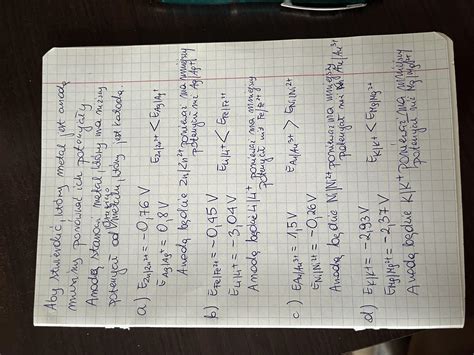 Aby stwierdzić, który metal jest anodą
musimy porównać ich potencjały
Anodą stanowi metal, który ma niższy
potencjał od metalu, który jest katodą
a) E Zn|Zn²⁺ = -0,76 V
E Zn|Zn²⁺ < E Ag|Ag⁺
E Ag|Ag⁺ = 0,8 V
Anodą będzie Zn|Zn²⁺ ponieważ ma mniejszy
potencjał niż Ag|Ag⁺
b) E Fe|Fe²⁺ = -0,45 V
E Li|Li⁺ < E Fe|Fe²⁺
E Li|Li⁺ = -3,04 V
Anodą będzie Li|Li⁺ ponieważ ma mniejszy
potencjał niż Fe|Fe²⁺
c) E Au|Au³⁺ = 1,5 V
E Au|Au³⁺ > E Ni|Ni²⁺
E Ni|Ni²⁺ = -0,26 V
Anodą będzie Ni|Ni²⁺ ponieważ ma mniejszy
potencjał niż Au|Au³⁺
d) E K|K⁺ = -2,93 V
E K|K⁺ < E Mg|Mg²⁺
E Mg|Mg²⁺ = -2,37 V
Anodą będzie K|K⁺ ponieważ ma mniejszy
potencjał niż Mg|Mg²⁺